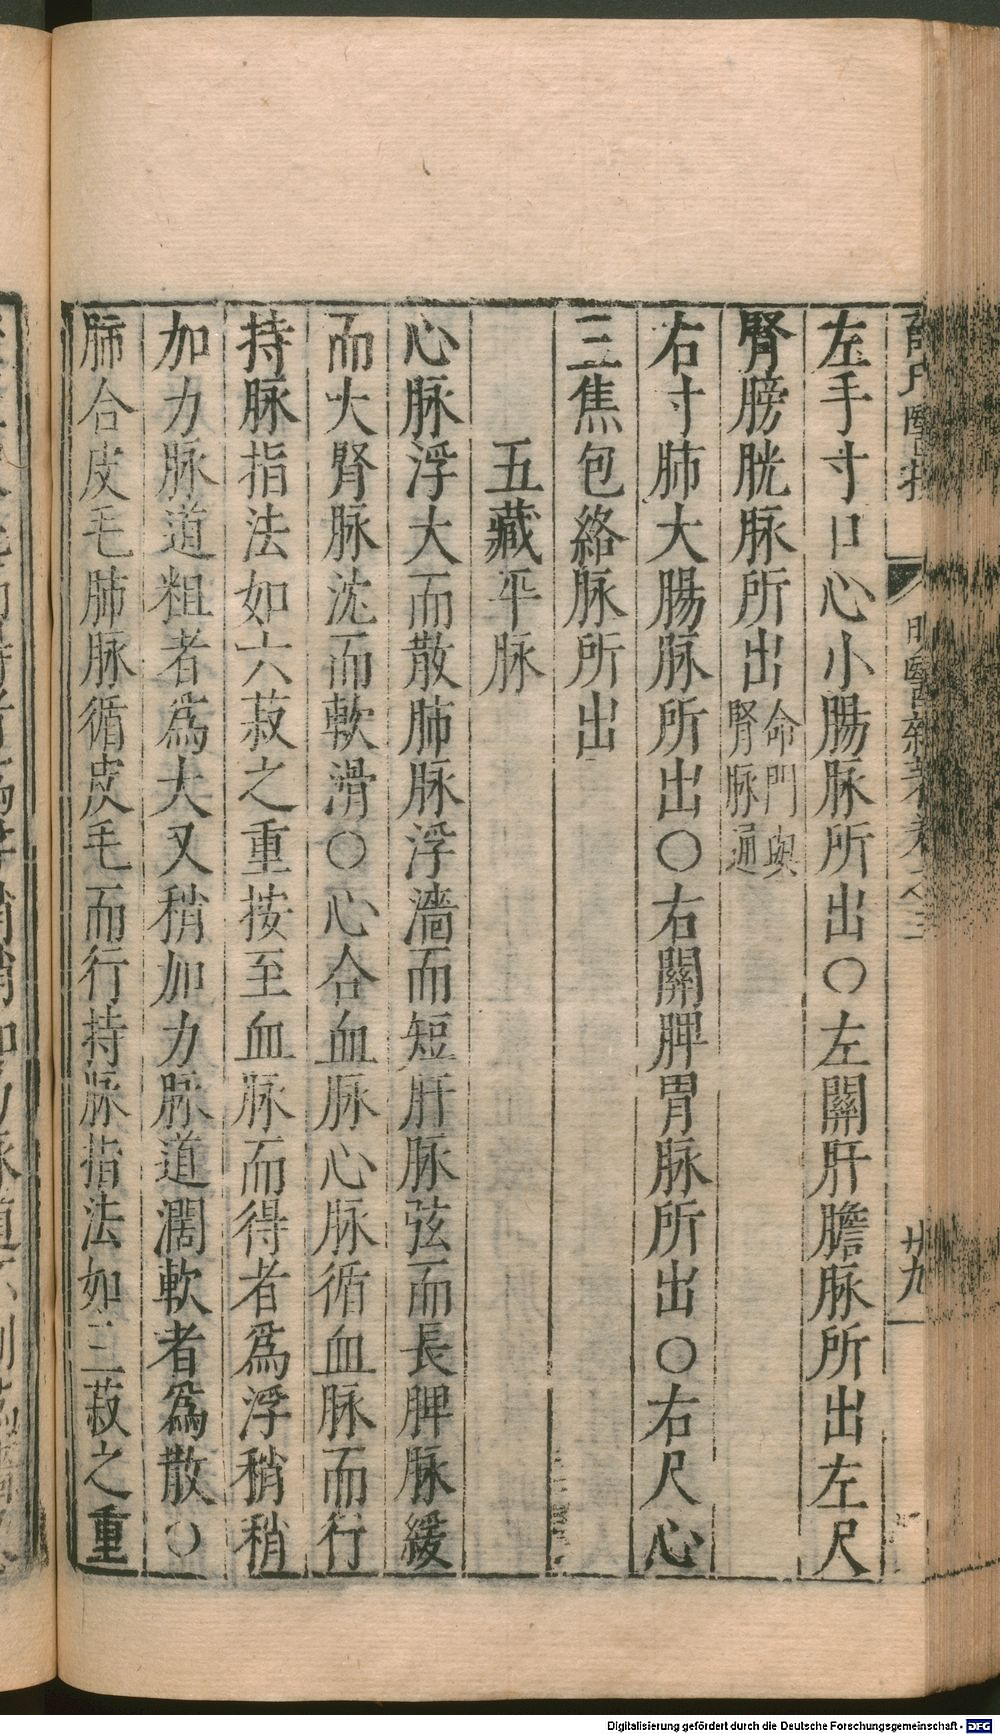 左手寸口心小腸脉所出〇左關肝膽脉所出左尺
腎膀胱脉所出命門與腎脉通
右寸肺大腸脉所出〇右關脾胃脉所出〇右尺心
三焦包絡脉所出
五藏平脉
心脉浮大而散肺脉浮濇而短肝脉弦而長脾脉緩
而大腎脉沈而軟滑〇心合血脉心脉循血脉而行
持脉指法如六菽之重按至血脉而得者爲浮稍稍
加力脉道粗者爲大又稍加力脉道濶軟者爲散〇
肺合皮毛肺脉循皮毛而行持脉指法如三菽之重
廿九
Digitalisierung gefördert durch die Deutsche Forschungsgemeinschaft - DFG